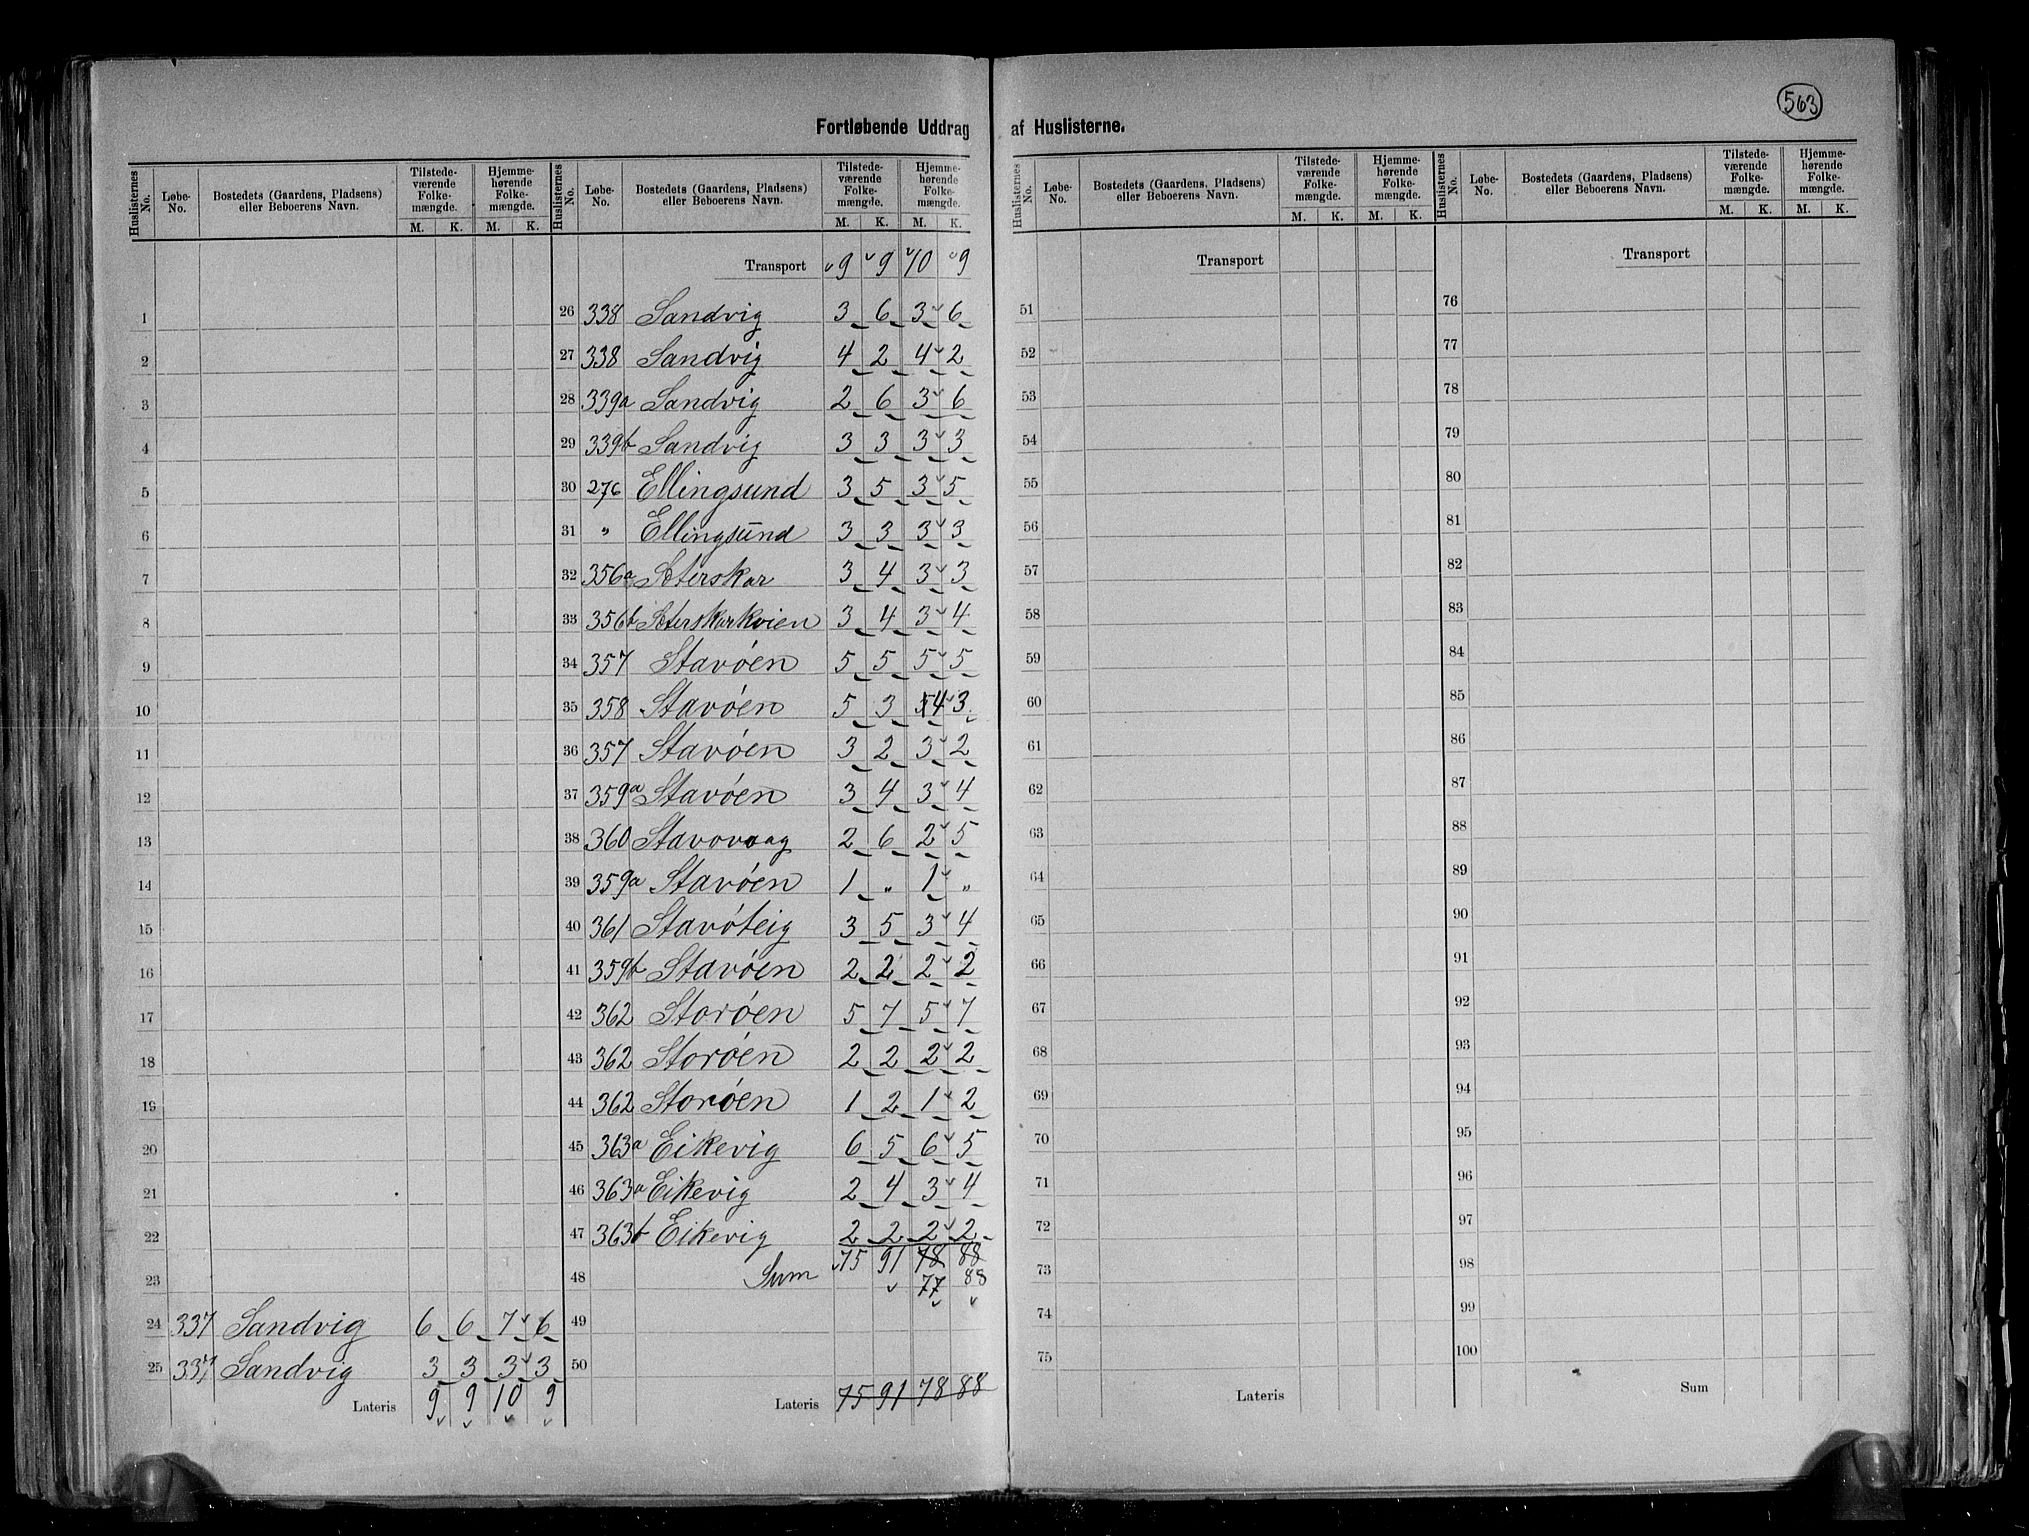 563
Fortløbende Uddrag af Huslisterne.
Huslisternes No. Løbe-No. Bostedets (Gaardens, Pladsens) eller Beboerens Navn. Tilstedeværende Folkemængde. M. K. Hjemmehørende Folkemængde. M. K.
1
2
3
4
5
6
7
8
9
10
11
12
13
14
15
16
17
18
19
20
21
22
23
24 337 Sandvig 6 6 7 6
25 337 Sandvig 3 3 3 3
Lateris 9 9 10 9
Huslisternes No. Løbe-No. Bostedets (Gaardens, Pladsens) eller Beboerens Navn. Tilstedeværende Folkemængde. M. K. Hjemmehørende Folkemængde. M. K.
Transport 9 9 10 9
26 338 Sandvig 3 6 3 6
27 338 Sandvig 4 2 4 2
28 339a Sandvig 2 6 3 6
29 339b Sandvig 3 3 3 3
30 276 Ellingsund 3 5 3 5
31 " Ellingsund 3 3 3 3
32 356a Sæterskar 3 4 3 3
33 356b Sæterskarkvien 3 4 3 4
34 357 Stavøen 5 5 5 5
35 358 Stavøen 5 3 5 4 3
36 357 Stavøen 3 2 3 2
37 359a Stavøen 3 4 3 4
38 360 Stavovaag 2 6 2 5
39 359a Stavøen 1 " 1 "
40 361 Stavøteig 3 5 3 4
41 359b Stavøen 2 2 2 2
42 362 Storøen 5 7 5 7
43 362 Storøen 2 2 2 2
44 362 Storøen 1 2 1 2
45 363a Eikevig 6 5 6 5
46 363a Eikevig 2 4 3 4
47 363b Eikevig 2 2 2 2
75 91 78 88
48 Sum 77 88
49
50
Lateris 75 91 78 88
Huslisternes No. Løbe-No. Bostedets (Gaardens, Pladsens) eller Beboerens Navn. Tilstedeværende Folkemængde. M. K. Hjemmehørende Folkemængde. M. K.
Transport
51
52
53
54
55
56
57
58
59
60
61
62
63
64
65
66
67
68
69
70
71
72
73
74
75
Lateris
Huslisternes No. Løbe-No. Bostedets (Gaardens, Pladsens) eller Beboerens Navn. Tilstedeværende Folkemængde. M. K. Hjemmehørende Folkemængde. M. K.
Transport
76
77
78
79
80
81
82
83
84
85
86
87
88
89
90
91
92
93
94
95
96
97
98
99
100
Sum